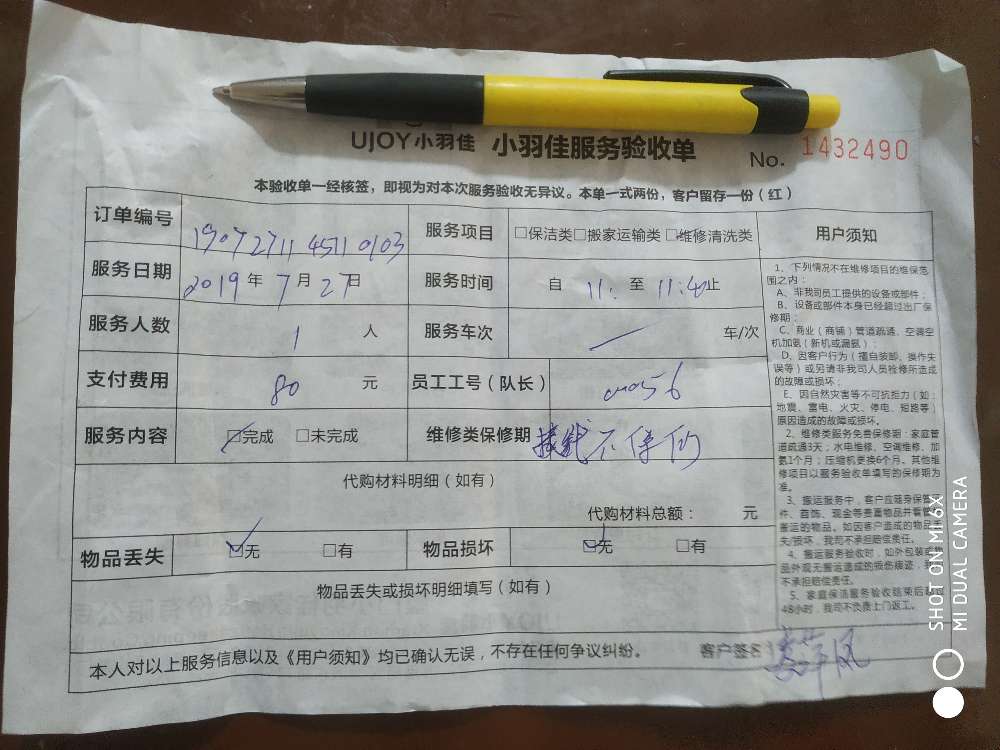 UJOY小羽佳 小羽佳服务验收单 No. 1432490
本验收单一经核签，即视为对本次服务验收无异议。本单一式两份，客户留存一份（红）
订单编号 190727114511 0103 服务项目 □保洁类□搬家运输类□维修清洗类
服务日期 2019年 7月 27日 服务时间 自 11: 至 11:40止
服务人数 1 人 服务车次 车/次
支付费用 80 元 员工工号（队长）
服务内容 □完成 □未完成 维修类保修期 接线不保修
代购材料明细（如有）
代购材料总额： 元
物品丢失 □无 □有 物品损坏 □无 □有
物品丢失或损坏明细填写（如有）
本人对以上服务信息以及《用户须知》均已确认无误，不存在任何争议纠纷。 客户签名
用户须知
1、下列情况不在维修项目的维保范
围之内：
A、非我司员工提供的设备或部件；
B、设备或部件本身已经超过出厂保
修期；
C、商业（商铺）管道疏通、空调空
机加氨（新机或漏氨）；
D、因客户行为（擅自装卸、操作失
误等）或另请非我司人员检修所造成
的故障或损坏；
E、因自然灾害等不可抗拒力（如：
地震、雷电、火灾、停电、短路等）
原因造成的故障或损坏。
2、维修类服务免费保修期：家庭管
道疏通3天；水电维修、空调维修、加
氨1个月；压缩机更换6个月。其他维
修项目以服务验收单填写的保修期为
准。
3、搬运服务中，客户应随身保管
件、首饰、现金等贵重物品并看管
搬运的物品。如因客户造成的物品丢
失/损坏，我司不承担赔偿责任。
4、搬运服务验收时，如外包装或物
品外观无搬运造成的损伤痕迹，我
不承担赔偿责任。
5、家庭保洁服务验收结束后超过
48小时，我司不负责上门返工。
SHOT ON MI 6X
MI DUAL CAMERA